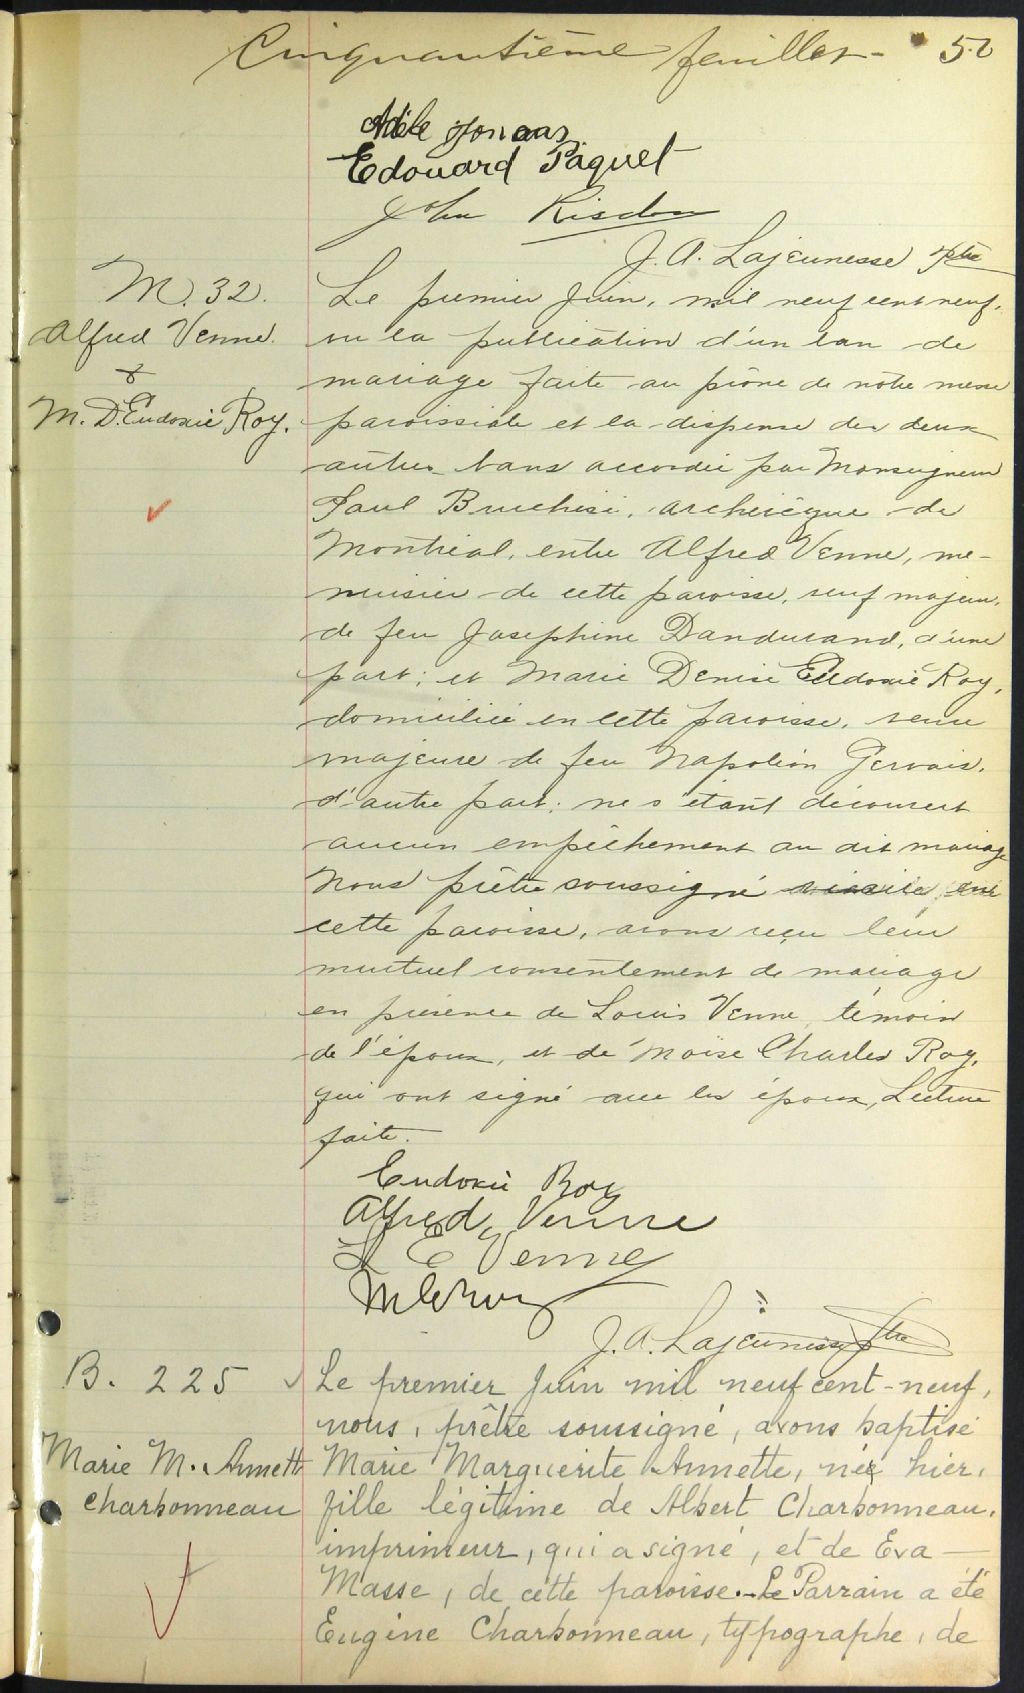 Cinquantième feuillet - 50
Adèle
Edouard Paquet
John Risdon
J. A. Lajeunesse ptre
M. 32.
Alfred Venne.
&
M. D. Eudoxie Roy.
Le premier Juin, mil neuf cent neuf,
vu la publication d'un ban de
mariage faite au prône de nôtre messe
paroissiale et la dispense des deux
autres bans accordée par Monseigneur
Paul Bruchési, archevêque de
Montréal, entre Alfred Venne, me-
nuisier de cette paroisse, veuf majeur,
de feu Josephine Dandurand, d'une
part; et Marie Denise Eudoxie Roy,
domiciliée en cette paroisse, veuve
majeure de feu Napoléon Gervais,
d'autre part; ne s'étant découvert
aucun empêchement au dit mariage
Nous prêtre soussigné vicaire curé
cette paroisse, avons reçu leur
mutuel consentement de mariage
en présence de Louis Venne, témoin
de l'époux, et de Moïse Charles Roy,
qui ont signé avec les époux, Lecture
faite.
Eudoxie Roy
Alfred Venne
L E Venne
M C Roy
J. A. Lajeunesse Ptre
B. 225
Marie M. Annette
Charbonneau
Le premier Juin mil neuf cent-neuf,
nous, prêtre soussigné, avons baptisé
Marie Marguerite Annette, née hier,
fille légitime de Albert Charbonneau,
imprimeur, qui a signé, et de Eva —
Masse, de cette paroisse. - Le Parrain a été
Eugène Charbonneau, typographe, de